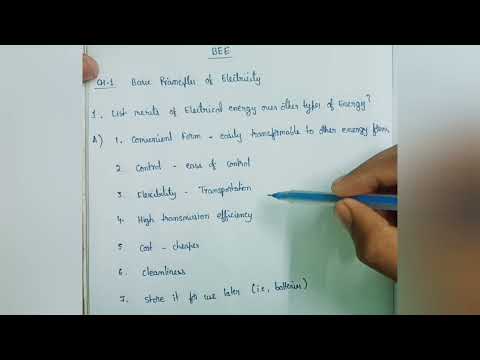 BEE
CH-1 Basic Principles of Electricity
1. List merits of Electrical energy over other types of Energy?
A) 1. Convenient Form - easily transformable to other energy form
2. Control - ease of control
3. Flexibility - Transportation
4. High transmission efficiency
5. Cost - cheaper
6. Cleanliness
7. Store it for use later (i.e., batteries)